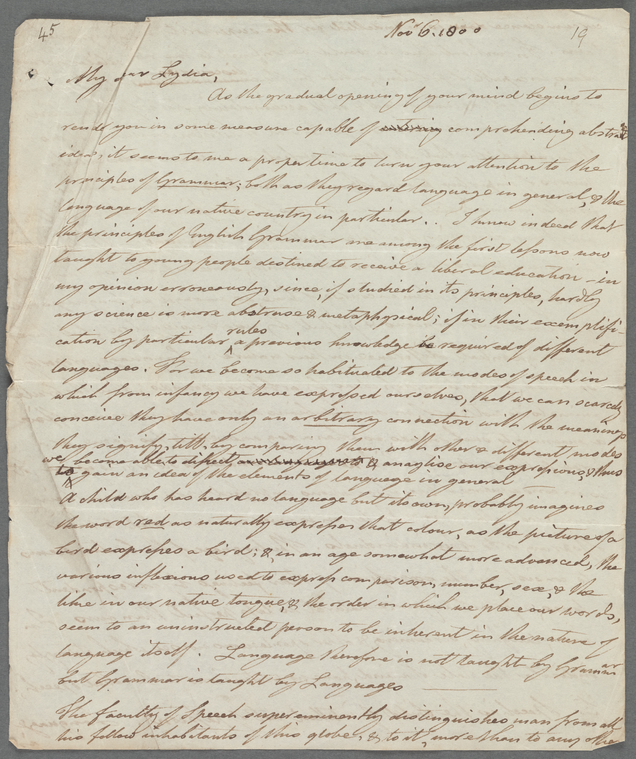 45
Novr 6. 1800
19
My dear Lydia,
As the gradual opening of your mind begins to
render you in some measure capable of comprehending abstract
ideas, it seems to me a proper time to turn your attention to the
principles of Grammar; both as they regard language in general, & the
language of our native country in particular.. I know indeed that
the principles of English Grammar are among the first lessons now
taught to young people destined to receive a liberal education – in
my opinion erroneously, since, if studied in its principles, hardly
any science is more abstruse & metaphysical; if in their exemplifi-
rules
cation by particular ^ a previous knowledge be required of different
languages. For we become so habituated to the modes of speech in
which from infancy we have expressed ourselves, that we can scarcely
conceive they have only an arbitrary connection with the meanings
they signify, till, by comparing them with other & different modes
we become able to & analyse our expressions, & thus
to gain an idea of the elements of language in general
A child who has heard no language but its own, probably imagines
the word red as naturally expresses that colour, as the picture of a
bird expresses a bird; &, in an age somewhat more advanced, the
various inflexions used to express comparison, number, sex, & the
like in our native tongue, & the order in which we place our words,
seem to an uninstructed person to be inherent in the nature of
language itself. Language therefore is not taught by Grammar
but Grammar is taught by Languages
The Faculty of Speech supereminently distinguishes man from all
his fellow inhabitants of this globe; & to it, more than to any other